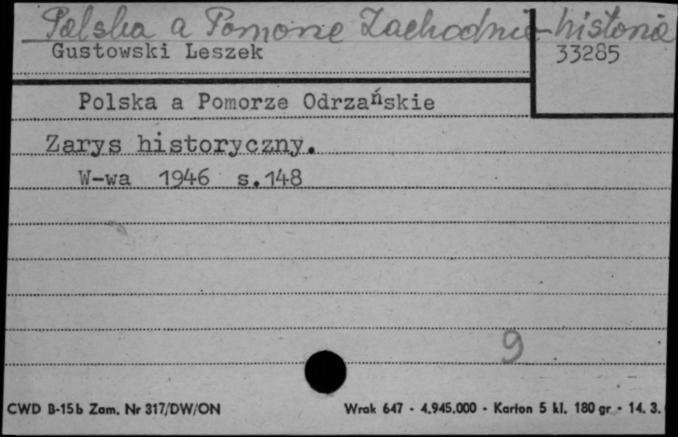 Polska a Pomorze Zachodnie - historia
Gustowski Leszek
33285
Polska a Pomorze Odrzańskie
Zarys historyczny.
W-wa 1946 s.148
9
CWD B-15b Zam. Nr 317/DW/ON
Wrak 647 - 4.945.000 - Karton 5 kl. 180 gr - 14. 3.